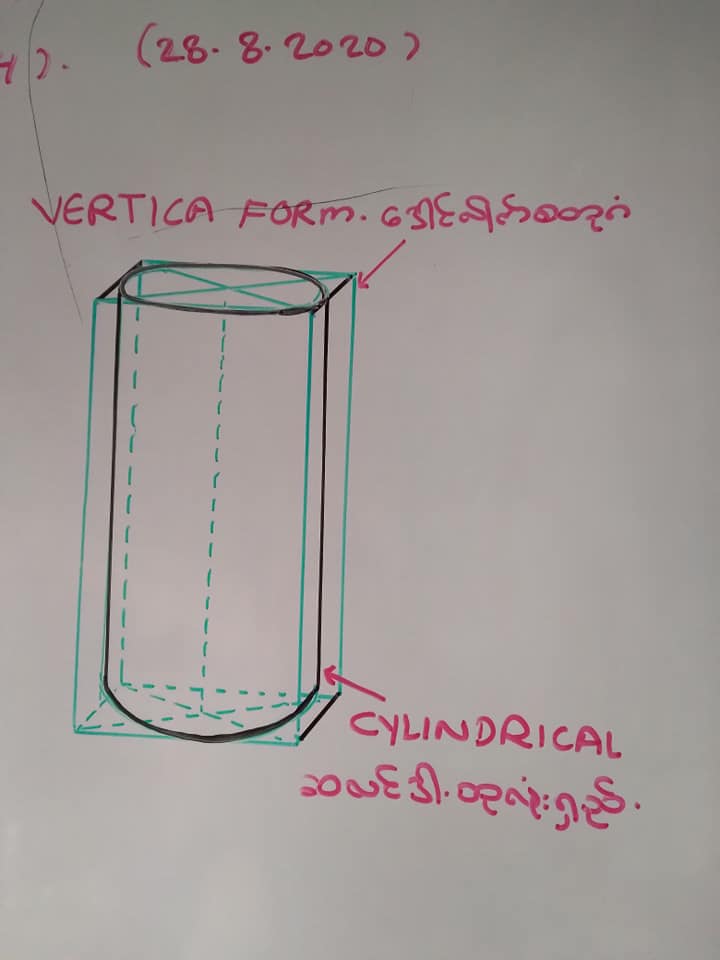 4). (28.8.2020)
VERTICA FORM. ဒေါင်လိုက်စတုဂံ
CYLINDRICAL
ဆလင်ဒါ. ထုလုံးရှည်.